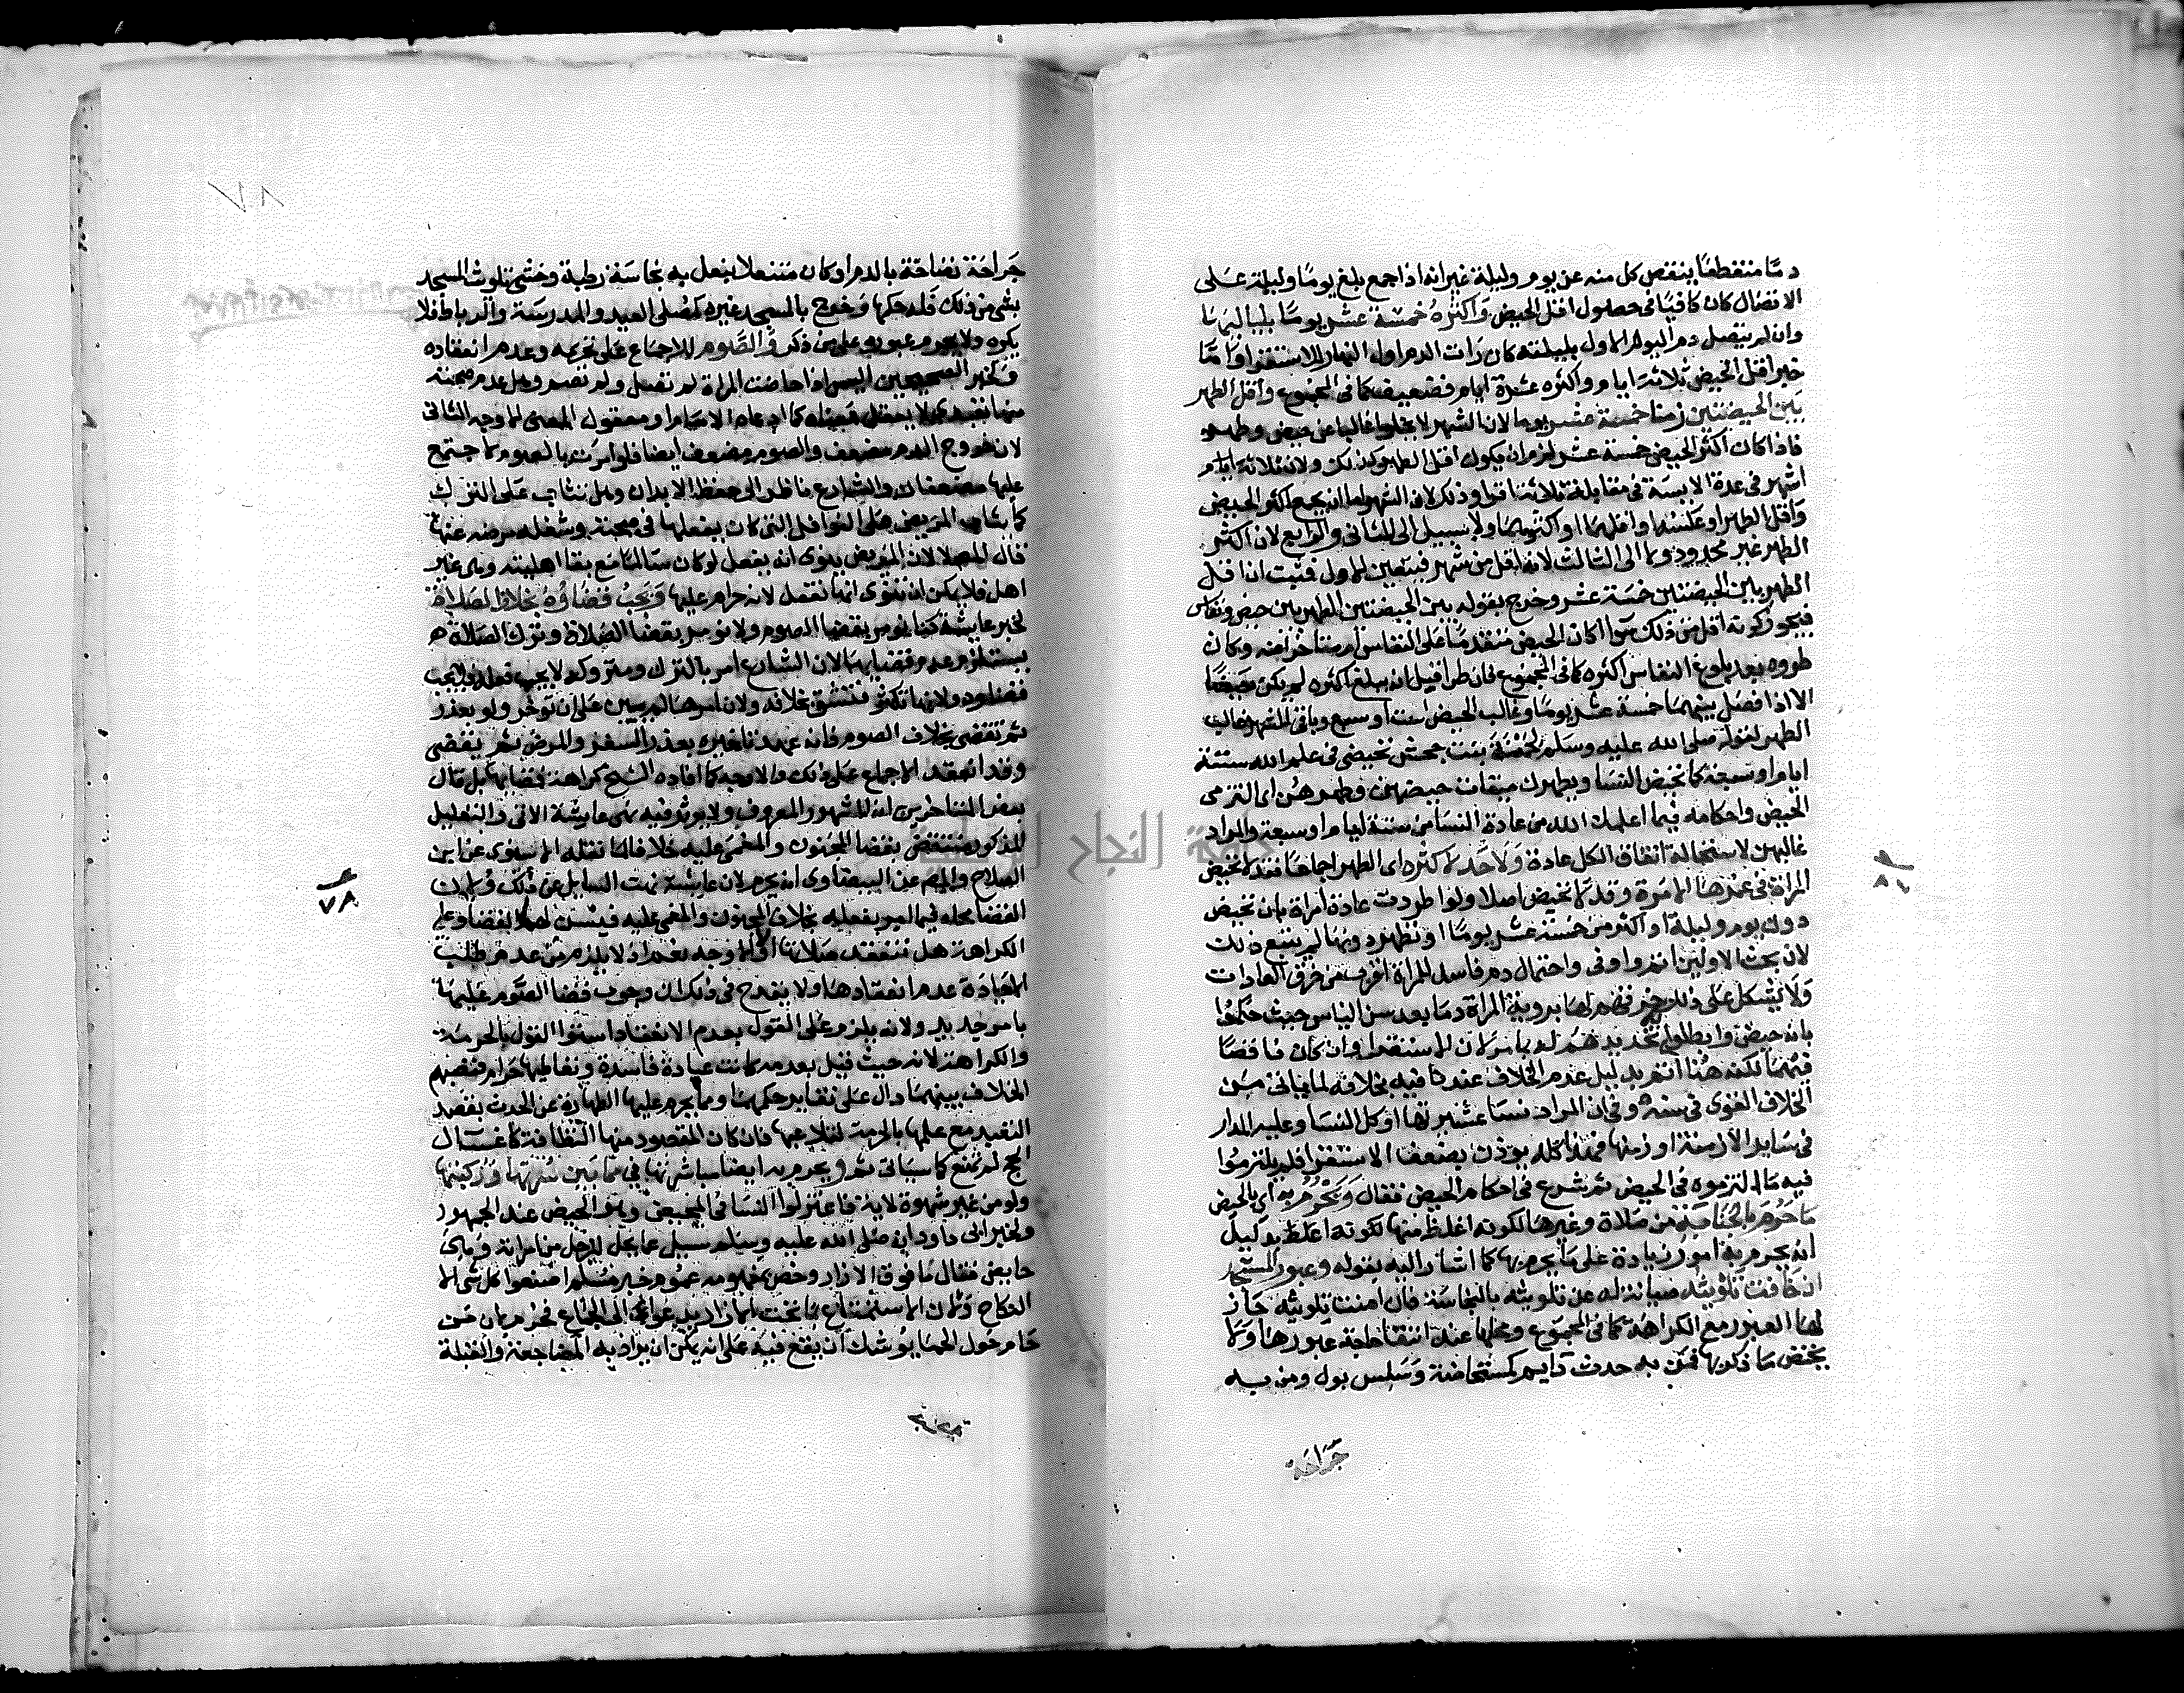 دما متقطعا ينقص كل منه عن يوم وليلة غير انه اذا جمع بلغ يوما وليلة على
الاتصال كان كافيا فى حصول اقل الحيض واكثره خمسة عشر يوما بلياليها
وان لم يتصل دم اليوم الاول بليلته كان رات الدم اول النهار للاستقراء واما
خبر اقل الحيض ثلاثة ايام واكثره عشرة ايام فضعيف كما فى المجموع واقل الطهر
بين الحيضتين زمنا خمسة عشر يوما لان الشهر لا يخلوا غالبا عن حيض وطهر
فاذا كان اكثر الحيض خمسة عشر لزم ان يكون اقل الطهر كذلك ولان ثلاثة
اشهر فى عدة الايسة فى مقابلة ثلاثة اقرا وذلك لان الشهر اما ان يجمع اكثر الحيض
واقل الطهر او عكسه او اقلهما او اكثرهما ولا سبيل الى الثانى والرابع لان اكثر
الطهر غير محدود ولا الى الثالث لانه اقل من شهر فيتعين الاول فثبت ان اقل
الطهر بين الحيضتين خمسة عشر وخرج بقوله بين الحيضتين الطهر بين حيض ونفاس
فيجوز كونه اقل من ذلك سوا اكان الحيض متقدما على النفاس ام متاخرا عنه وكان
طروه بعد بلوغ النفاس اكثره كما فى المجموع فان طرا قبل ان يبلغ اكثره لم يكن حيضا
الا اذا فصل بينهما خمسة عشر يوما وغالب الحيض ست او سبع وباقى الشهر غالب
الطهر لقوله صلى الله عليه وسلم لحمنة بنت جحش تحيضى فى علم الله ستة
ايام او سبعة كما تحيض النسا ويطهرن ميقات حيضهن وطهرهن اى التزمى
الحيض واحكامه فيما اعلمك الله من عادة النسا من ستة ايام او سبعة والمراد
غالبهن لاستحالة اتفاق الكل عادة ولا حد لاكثره اى الطهر اجماعا فقد لا تحيض
المراة فى عمرها الا مرة وقد لا تحيض اصلا ولو اطردت عادة امراة بان تحيض
دون يوم وليلة او اكثر من خمسة عشر يوما او تطهر دونها لم يتبع ذلك
لان بحث الاولين اتم واوفى واحتمال دم فاسد للمراة اقرب من خرق العادات
ولا يشكل على ذلك خرقهم لها بروية المراة دما بعد سن الياس حيث حكموا
بانه حيض وابطلوا تحديدهم له بامر لان الاستقرا وان كان ناقصا
فيهما لكنه هنا اتم بدليل عدم الخلاف عندنا فيه بخلافه لما ياتى من
الخلاف القوى فى سنه وفى ان المراد نسا عشيرتها او كل النسا وعليه المدار
فى ساير الازمنة او زمنها فهذا كله يوذن بضعف الاستقرا فلم يلتزموا
فيه ما التزموه فى الحيض ثم شرع فى احكام الحيض فقال ويحرم به اى بالحيض
ما حرم بالجنابة من صلاة وغيرها لكونه اغلظ منها لكونه اغلظ بدليل
انه يحرم به امور زيادة على ما يحرم بها كما اشار اليه بقوله وعبور المسجد
ان خافت تلويثه صيانة له عن تلويثه بالنجاسة فان امنت تلويثه جاز
لها العبور مع الكراهة كما فى المجموع ومحلها عند انتفا حاجة عبورها ولا
يختص ما ذكر بها فمن به حدث دايم كمستحاضة وسلس بول ومن به
جراحة
جراحة نضاخة بالدم او كان متنعلا بنعل به نجاسة رطبة وخشى تلويث المسجد
بشى من ذلك فله حكمها وخرج بالمسجد غيره كمصلى العيد والمدرسة والرباط فلا
يكره ولا يحرم عبوره على من ذكر والصوم للاجماع على تحريمه وعدم انعقاده
ولخبر الصحيحين اليس اذا حاضت المراة لم تصل ولم تصم وهل عدم صحته
منها تعبدى لا يعقل معناه كما ادعاه الامام او معقول المعنى الاوجه الثانى
لان خروج الدم مضعف والصوم مضعف ايضا فلو امرت بالصوم لاجتمع
عليها مضعفان والشارع ناظر الى حفظ الابدان وهل تثاب على الترك
كما يثاب المريض على النوافل التى كان يفعلها فى صحته وشغله مرضه عنها
قال المصلا لان المريض ينوى انه يفعل لو كان سالما مع بقا اهليته وهى غير
اهل فلا يمكن ان تنوى انها تفعل لانه حرام عليها ويجب قضاؤه بخلاف الصلاة
لخبر عايشة كنا نومر بقضا الصوم ولا نومر بقضا الصلاة وترك الصلاة
يستلزم عدم قضايها لان الشارع امر بالترك ومتروكه لا يجب فعله فلا يجب
قضاوه ولانها تكثر فتشق بخلافه ولان امرها لم يبن على ان توخر ولو بعذر
ثم تقضى بخلاف الصوم فانه عهد تاخيره بعذر السفر والمرض ثم يقضى
وقد انعقد الاجماع على ذلك والاوجه كما افاده الشيخ كراهة قضايها بل قال
بعض المتاخرين انه المشهور المعروف ولا يوثر فيه نهى عايشة الاتى والتعليل
المذكور منتقض بقضا المجنون والمغمى عليه خلافا لما نقله الاسنوى عن ابن
الصلاح والمصـ عن البيضاوى انه يحرم لان عايشة نهت السايل عن ذلك ولان
القضا محله فيما امر بفعله بخلاف المجنون والمغمى عليه فيسن لهما القضا وعلى
الكراهة هل تنعقد صلاتها او لا الاوجه نعم اذ لا يلزم من عدم طلب
العبادة عدم انعقادها ولا يقدح فى ذلك ان وجوب قضا الصوم عليها
بامر جديد ولانه يلزم على القول بعدم الانعقاد استوا القول بالحرمة
والكراهة لانه حيث قيل بعدمه كانت عبادة فاسدة وتعاطيها حرام فنصبهم
الخلاف بينهما دال على تغاير حكمهما ومما يحرم عليها الطهارة عن الحدث بقصد
التعبد مع علمها بالحرمة لتلاعبها فان كان المقصود منها النظافة كاغسال
الحج لم تمنع كما سياتى ثم ويحرم به ايضا مباشرتها فى ما بين سرتها وركبتها
ولو من غير شهوة لاية فاعتزلوا النسا فى المحيض وهو الحيض عند الجمهور
ولخبر ابى داود انه صلى الله عليه وسلم سيل عما يحل للرجل من امراته وهى
حايض فقال ما فوق الازار وخص بمفهومه عموم خبر مسلم اصنعوا كل شى الا
النكاح ولان الاستمتاع بما تحت الازار يدعو الى الجماع فحرم لان من
حام حول الحما يوشك ان يقع فيه على انه يمكن ان يراد به المضاجعة والقبلة
٧٨